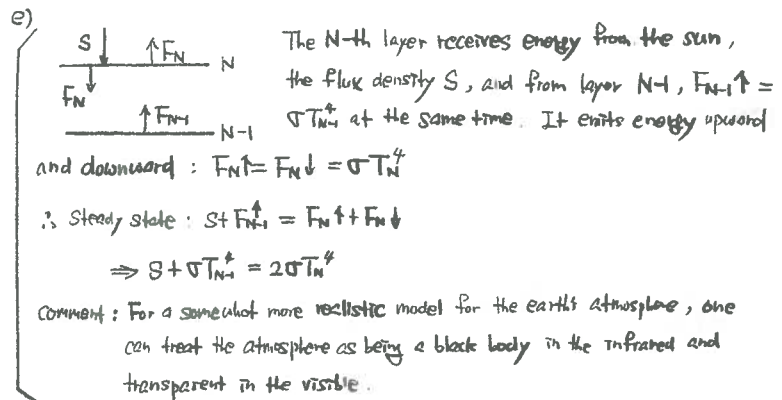 e)
S↓ ↑F_N N
F_N↓
↑F_{N-1} N-1
The N-th layer receives energy from the sun,
the flux density S, and from layer N-1, F_{N-1}↑ =
σT_{N-1}^4 at the same time. It emits energy upward
and downward : F_N↑ = F_N↓ = σT_N^4
∴ Steady state : S + F_{N-1}↑ = F_N↑ + F_N↓
⇒ S + σT_{N-1}^4 = 2σT_N^4
Comment : For a somewhat more realistic model for the earth's atmosphere, one
can treat the atmosphere as being a black body in the infrared and
transparent in the visible.